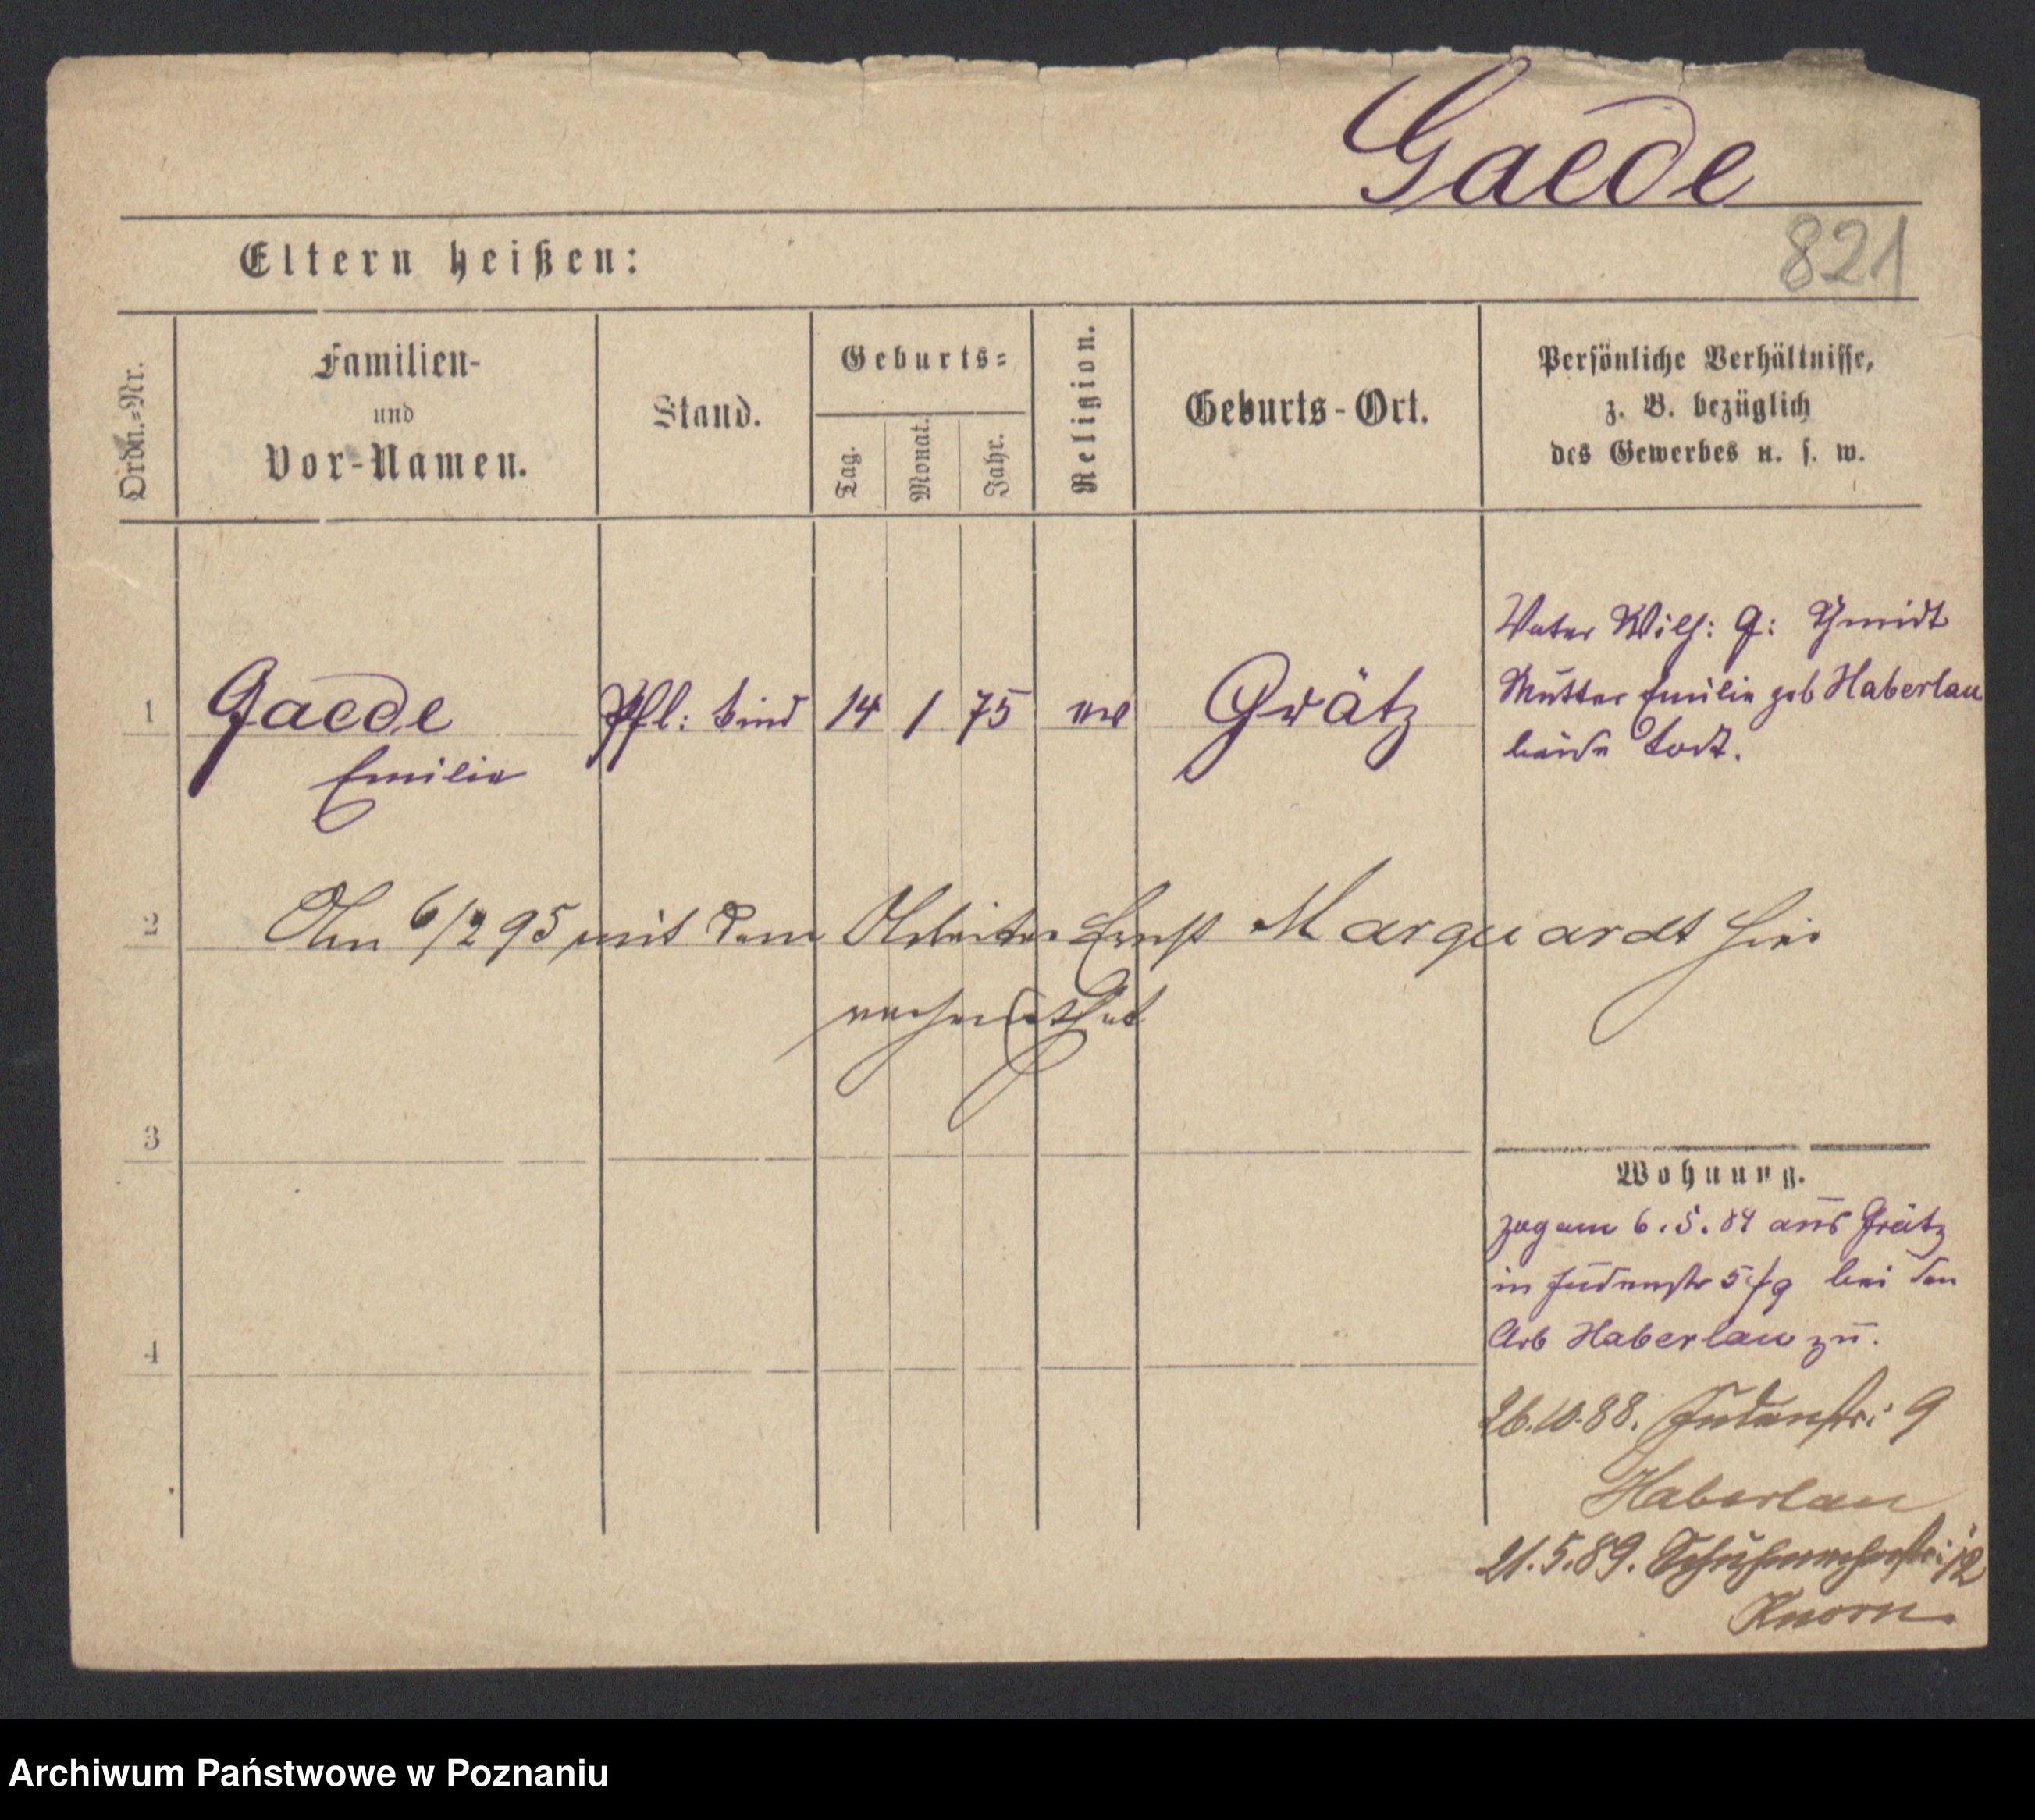 Gaede
821
Eltern heißen:
Ordn.-Nr.
Familien-
und
Vor-Namen.
Stand.
Geburts-
Tag.
Monat.
Jahr.
Religion.
Geburts-Ort.
Persönliche Verhältnisse,
z. B. bezüglich
des Gewerbes u. s. w.
1
Gaede
Emilie
Pfl: Kind
14
1
75
ev
Grätz
Vater Wilh: G: Schmidt
Mutter Emilie geb Haberlau
beide todt.
2
Am 6/2 95 mit dem Arbeiter Ernst Marquardt hier
verheirathet
3
Wohnung.
zog am 6.5.84 aus Grätz
in Judenstr 5/9 bei den
Arb Haberlau zu.
4
26.10.88. Judenstr: 9
Haberlau
21.5.89. Schuhmacherstr: 12
Knorn
Archiwum Państwowe w Poznaniu